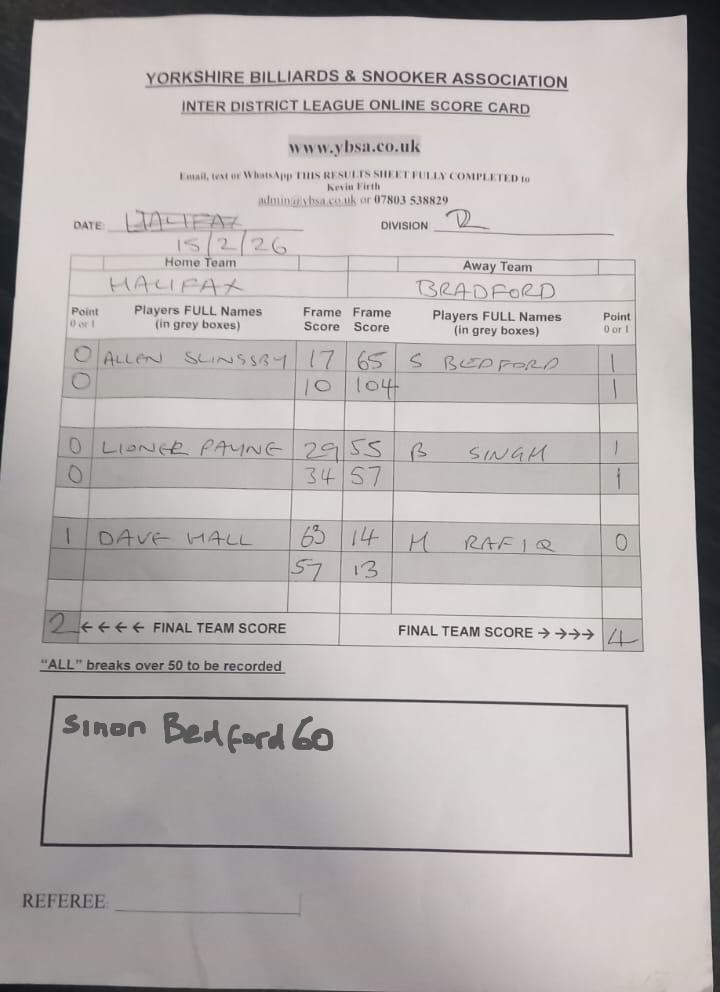 YORKSHIRE BILLIARDS & SNOOKER ASSOCIATION
INTER DISTRICT LEAGUE ONLINE SCORE CARD
www.ybsa.co.uk
Email, text or WhatsApp THIS RESULTS SHEET FULLY COMPLETED to
Kevin Firth
admin@ybsa.co.uk or 07803 538829
DATE: HALIFAX DIVISION
15/2/26
Home Team Away Team
HALIFAX BRADFORD
Point Players FULL Names Frame Frame Players FULL Names Point
0 or 1 (in grey boxes) Score Score (in grey boxes) 0 or 1
0 ALLEN SLINSSBY 17 65 S BEDFORD 1
0 10 104 1
0 LIONER PAYNE 29 55 B SINGH 1
0 34 57 1
1 DAVE HALL 63 14 M RAFIQ 0
57 13
2 ←←←← FINAL TEAM SCORE FINAL TEAM SCORE →→→→ 4
"ALL" breaks over 50 to be recorded
Simon Bedford 60
REFEREE: